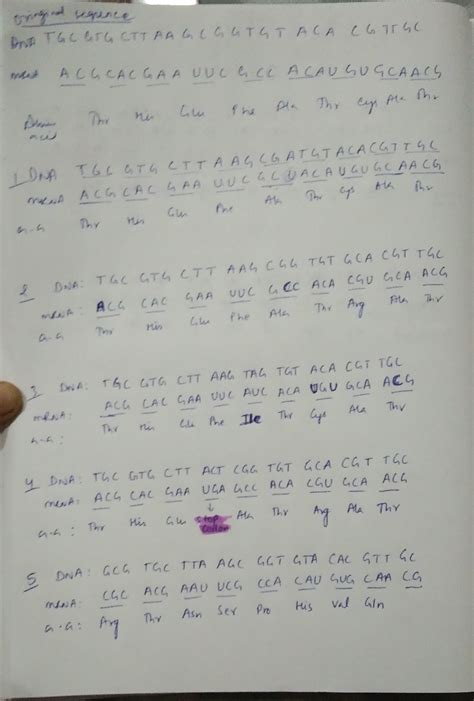 Original sequence
DNA TGC GTG CTT AAG CGG TGT ACA CGTTGC
mRNA ACG CAC GAA UUC GCC ACAUGUGCAACG
Amino acid Thr His Glu Phe Ala Thr Cys Ala Thr
1 DNA TGC GTG CTT AAGCGATGTACACGTTGC
mRNA ACG CAC GAA UUC GCU ACAUGUGCAACG
a-a Thr His Glu Phe Ala Thr Cys Ala Thr
2 DNA: TGC GTG CTT AAG CGG TGT GCA CGT TGC
mRNA: ACG CAC GAA UUC GCC ACA CGU GCA ACG
a-a Thr His Glu Phe Ala Thr Arg Ala Thr
3 DNA: TGC GTG CTT AAG TAG TGT ACA CGT TGC
mRNA: ACG CAC GAA UUC AUC ACA UGU GCA ACG
a-a: Thr His Glu Phe Ile Thr Cys Ala Thr
4 DNA: TGC GTG CTT ACT CGG TGT GCA CGT TGC
mRNA: ACG CAC GAA UGA GCC ACA CGU GCA ACG
a-a: Thr His Glu Stop codon Ala Thr Arg Ala Thr
5 DNA: GCG TGC TTA AGC GGT GTA CAC GTT GC
mRNA: CGC ACG AAU UCG CCA CAU GUG CAA CG
a-a: Arg Thr Asn Ser Pro His Val Gln